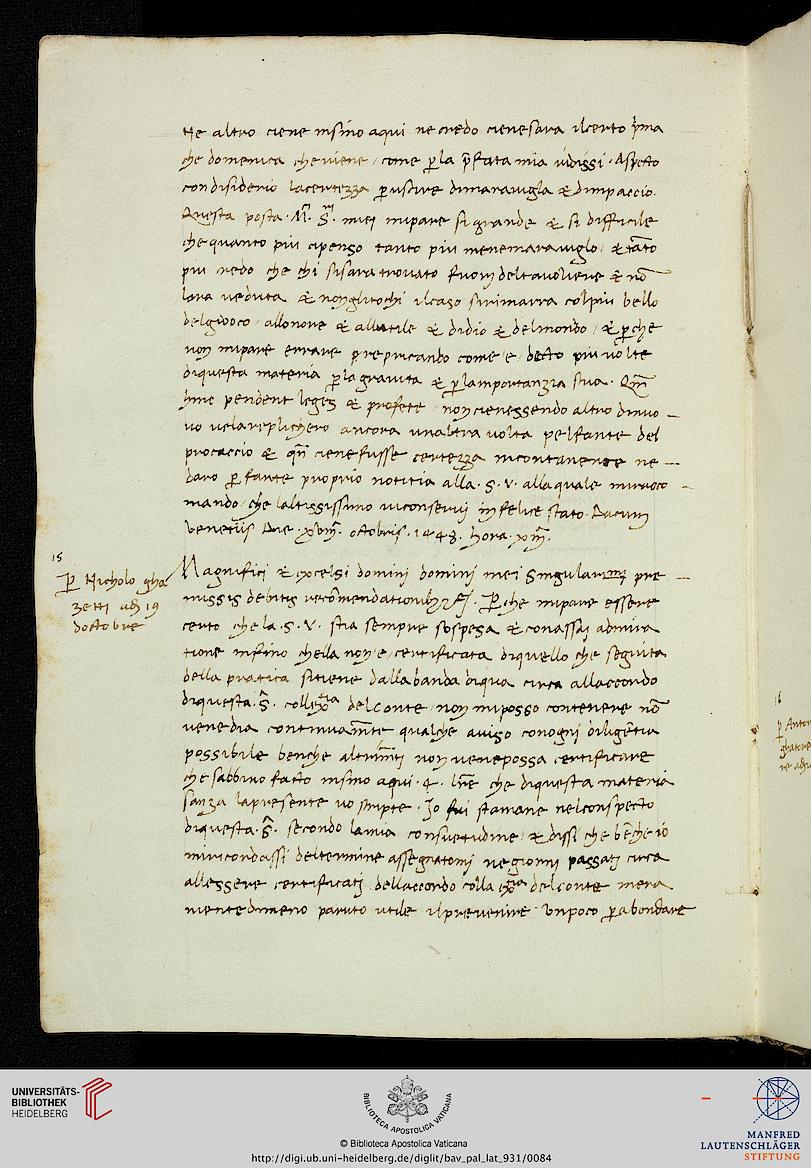 Ne altro ciene insino aqui ne credo cienesara ilcerto p̄ma
che domenica cheviene / come p̱ la p̄fata mia vidissi · Aspecto
condisiderio lacertezza p̱ uscire dimaraviglia & dimpaccio ·
Questa posta · M. S. miei mipare sigrande & si difficile
chequanto piu cipenso tanto piu menemaraviglo / & tāto
piu vedo che chi sisara trovato fuorj deltavoliere & nō
lara veduta & nonglitochi ilcaso sirimarra colpiu bello
delgiuoco / allonore & allutile & didio & delmondo / & p̱che
non mipare errare repricando come / e / decto piu volte
diquesta materia p̱lagravita & p̱ lamportanzia sua · Qm̄
hinc pendent leges & profete / noncienessendo altro dinuo
vo velareplichero ancora unaltra volta pelfante del
procaccio & qn̄ cienefusse certezza incontanente ne
daro p̱ fante proprio notitia alla · S · V · allaquale miraco
mando / che laltissimo viconservi infelice stato · Datum
Venetiis Die · xviij · octobris · 1448 · hora · xiij ·
15
P̱ Nicholo gha
zetti adj 19
doctobre
Magnifici & excelsi dominj dominj mei singularissimi pre
missis debitis recōmendationibus · P̱che mipare essere
certo che la · S · V · stia sempre sospesa & conassai admira
tione infino chella non / e / certificata diquello che seguita
della pratica sitiene dallabanda diqua circa allaccordo
diquesta · S̄ · colla delconte / non miposso contenere nō
venedia continuamēte qualche aviso conogni diligētia
possibile benche altrimēti non venepossa certificare
che sabbino facto insino aqui · 4 · lr̄e che diquesta materia
sanza lapresente vo scripte · Io fui stamane nelconspecto
diquesta · S̄ · secondo lamia consuetudine / & dissi che bēche io
miricordassi deltermine assegnatomi negiorni passatj circa
allessere certificatj dellaccordo colla delconte mera
nientedimeno paruto utile ilprevenire unpoco p̱ abondare
16
p̱ Anton
UNIVERSITÄTS-
BIBLIOTHEK
HEIDELBERG
BIBLIOTHECA APOSTOLICA VATICANA
© Biblioteca Apostolica Vaticana
http://digi.ub.uni-heidelberg.de/diglit/bav_pal_lat_931/0084
MANFRED
LAUTENSCHLÄGER
STIFTUNG